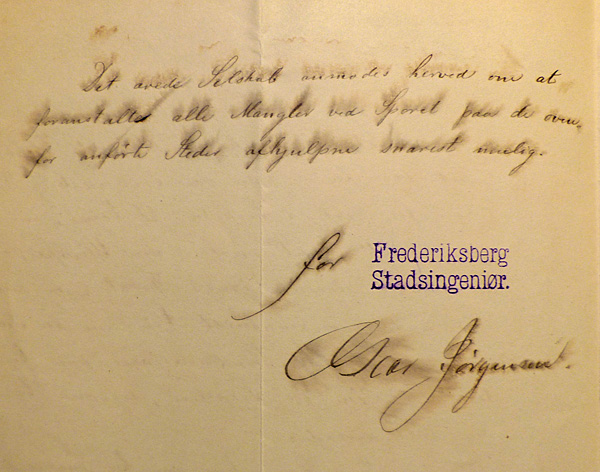 Det ærede Selskab anmodes herved om at
foranstalte alle Mangler ved Sporet paa de oven-
for anførte Steder afhjulpne snarest muelig.
for Frederiksberg
Stadsingeniør.
Oscar Jørgensen.